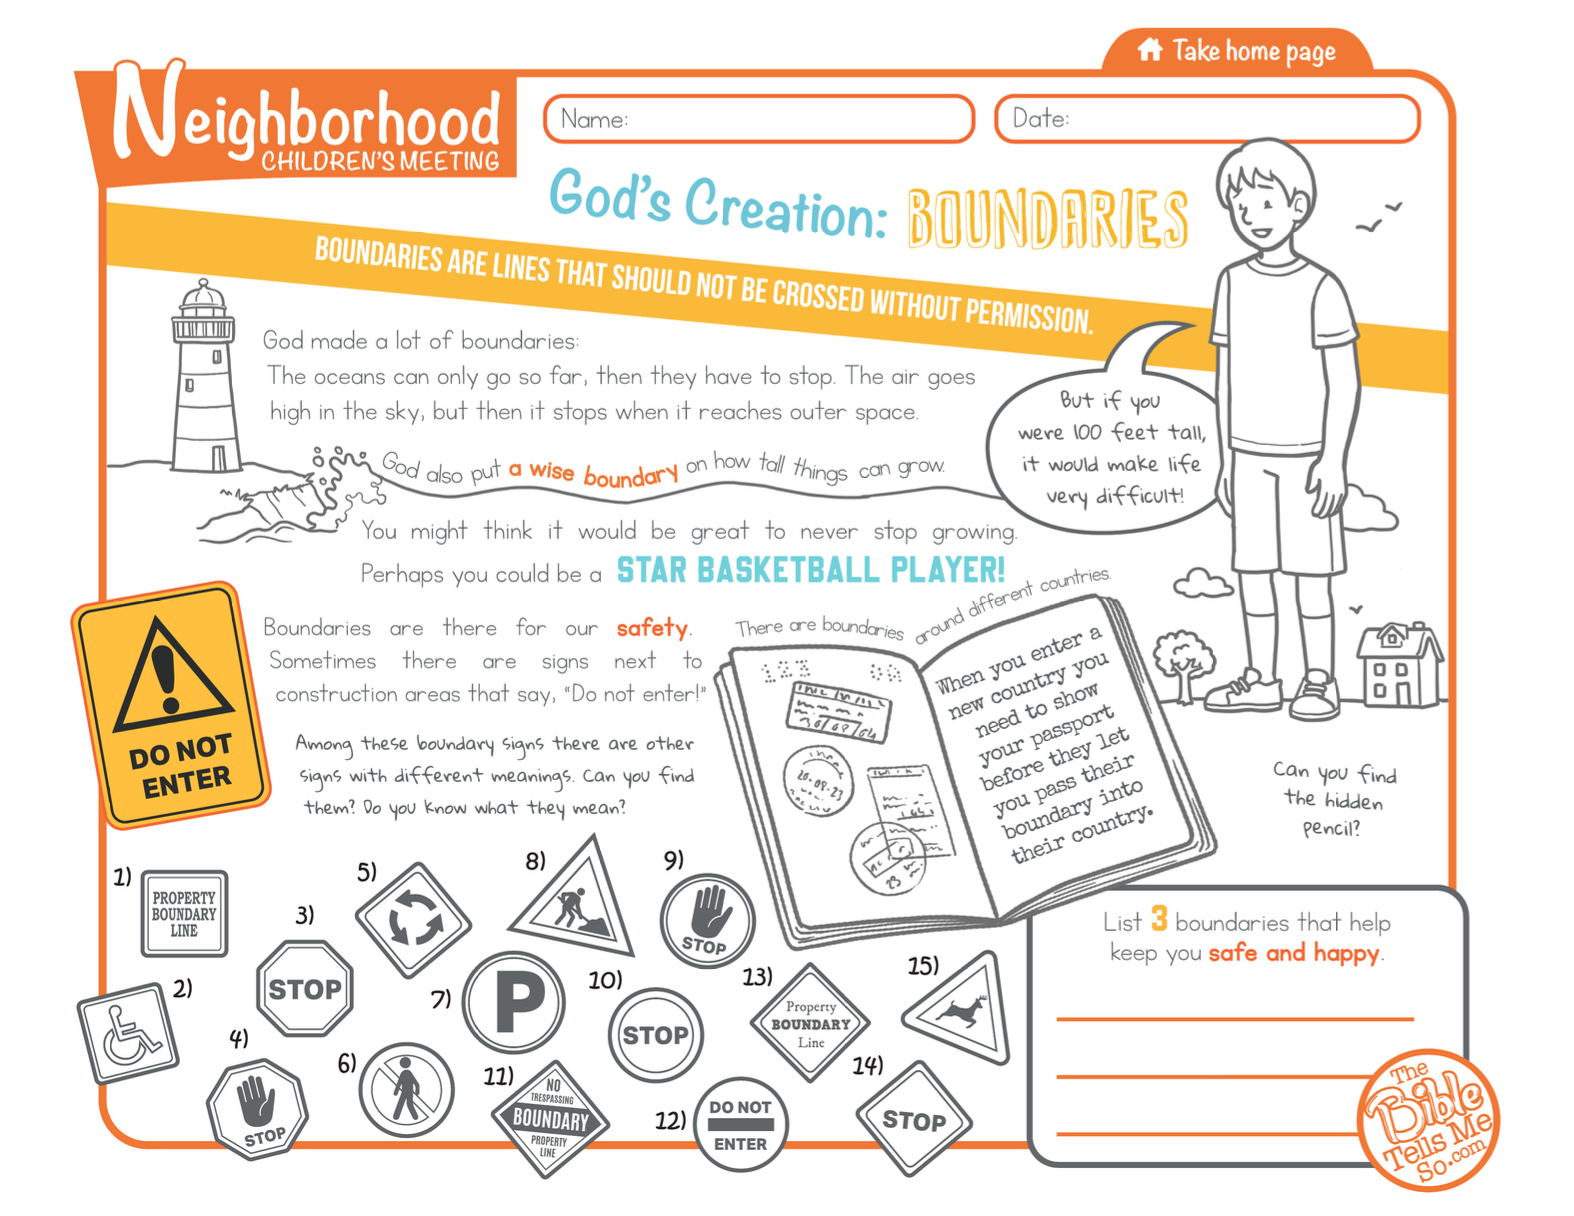 Take home page
Neighborhood
CHILDREN'S MEETING
Name:
Date:
God's Creation: BOUNDARIES
BOUNDARIES ARE LINES THAT SHOULD NOT BE CROSSED WITHOUT PERMISSION.
God made a lot of boundaries:
The oceans can only go so far, then they have to stop. The air goes
high in the sky, but then it stops when it reaches outer space.
God also put a wise boundary on how tall things can grow.
But if you
were 100 feet tall,
it would make life
very difficult!
You might think it would be great to never stop growing.
Perhaps you could be a STAR BASKETBALL PLAYER!
DO NOT
ENTER
Boundaries are there for our safety.
Sometimes there are signs next to
construction areas that say, "Do not enter!"
Among these boundary signs there are other
signs with different meanings. Can you find
them? Do you know what they mean?
There are boundaries around different countries.
123
When you enter a
new country you
need to show
your passport
before they let
you pass their
boundary into
their country.
20-09-23
23
Can you find
the hidden
pencil?
1)
PROPERTY
BOUNDARY
LINE
2)
3)
STOP
4)
STOP
5)
6)
7)
P
8)
9)
STOP
10)
STOP
11)
NO
TRESPASSING
BOUNDARY
PROPERTY
LINE
12)
DO NOT
ENTER
13)
Property
BOUNDARY
Line
14)
STOP
15)
List 3 boundaries that help
keep you safe and happy.
The
Bible
Tells Me
So.com